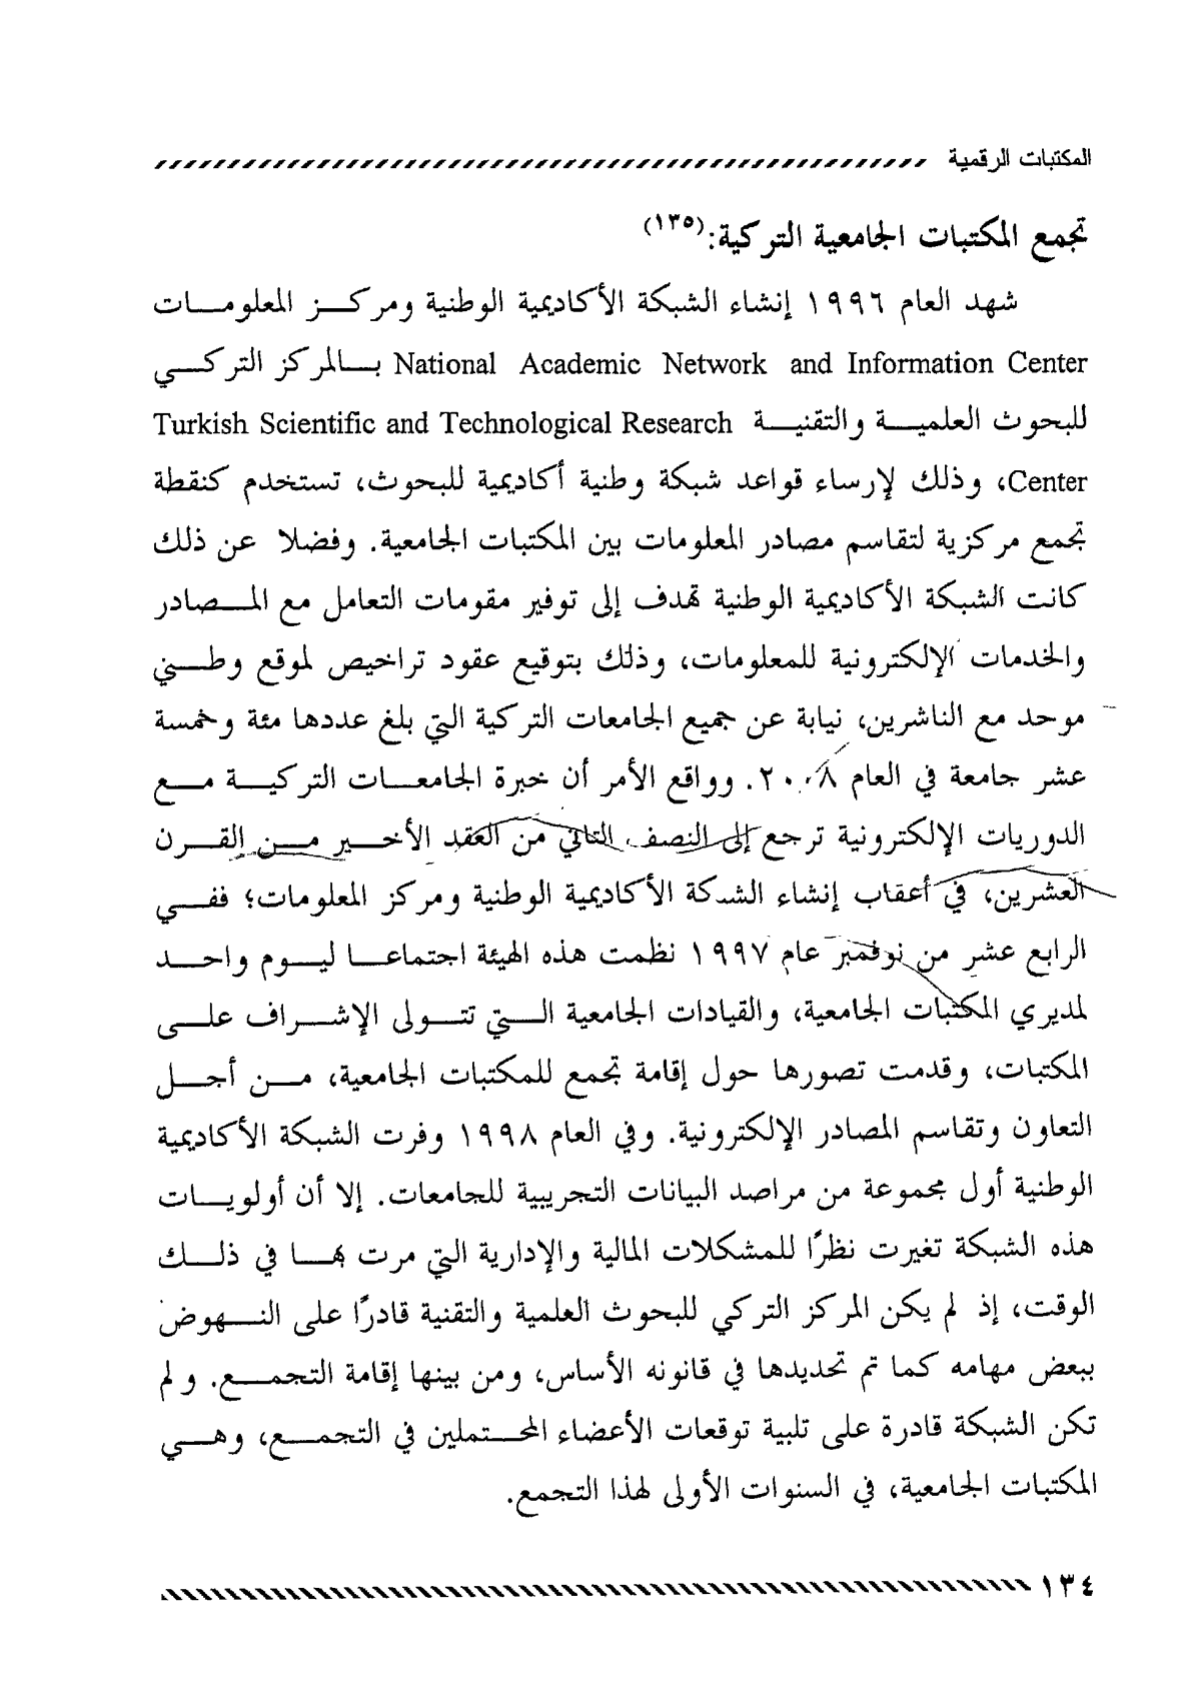 المكتبات الرقمية
تجمع المكتبات الجامعية التركية:(١٣٥)
شهد العام ١٩٩٦ إنشاء الشبكة الأكاديمية الوطنية ومركز المعلومات
National Academic Network and Information Center بالمركز التركي
للبحوث العلمية والتقنية Turkish Scientific and Technological Research
Center، وذلك لإرساء قواعد شبكة وطنية أكاديمية للبحوث، تستخدم كنقطة
تجمع مركزية لتقاسم مصادر المعلومات بين المكتبات الجامعية. وفضلا عن ذلك
كانت الشبكة الأكاديمية الوطنية تهدف إلى توفير مقومات التعامل مع المصادر
والخدمات الإلكترونية للمعلومات، وذلك بتوقيع عقود تراخيص لموقع وطني
موحد مع الناشرين، نيابة عن جميع الجامعات التركية التي بلغ عددها مئة وخمسة
عشر جامعة في العام ٢٠٠٨. وواقع الأمر أن خبرة الجامعات التركية مع
الدوريات الإلكترونية ترجع إلى النصف الثاني من العقد الأخير من القرن
العشرين، في أعقاب إنشاء الشبكة الأكاديمية الوطنية ومركز المعلومات؛ ففي
الرابع عشر من نوفمبر عام ١٩٩٧ نظمت هذه الهيئة اجتماعا ليوم واحد
لمديري المكتبات الجامعية، والقيادات الجامعية التي تتولى الإشراف على
المكتبات، وقدمت تصورها حول إقامة تجمع للمكتبات الجامعية، من أجل
التعاون وتقاسم المصادر الإلكترونية. وفي العام ١٩٩٨ وفرت الشبكة الأكاديمية
الوطنية أول مجموعة من مراصد البيانات التجريبية للجامعات. إلا أن أولويات
هذه الشبكة تغيرت نظرًا للمشكلات المالية والإدارية التي مرت بها في ذلك
الوقت، إذ لم يكن المركز التركي للبحوث العلمية والتقنية قادرًا على النهوض
ببعض مهامه كما تم تحديدها في قانونه الأساس، ومن بينها إقامة التجمع. ولم
تكن الشبكة قادرة على تلبية توقعات الأعضاء المحتملين في التجمع، وهي
المكتبات الجامعية، في السنوات الأولى لهذا التجمع.
١٣٤